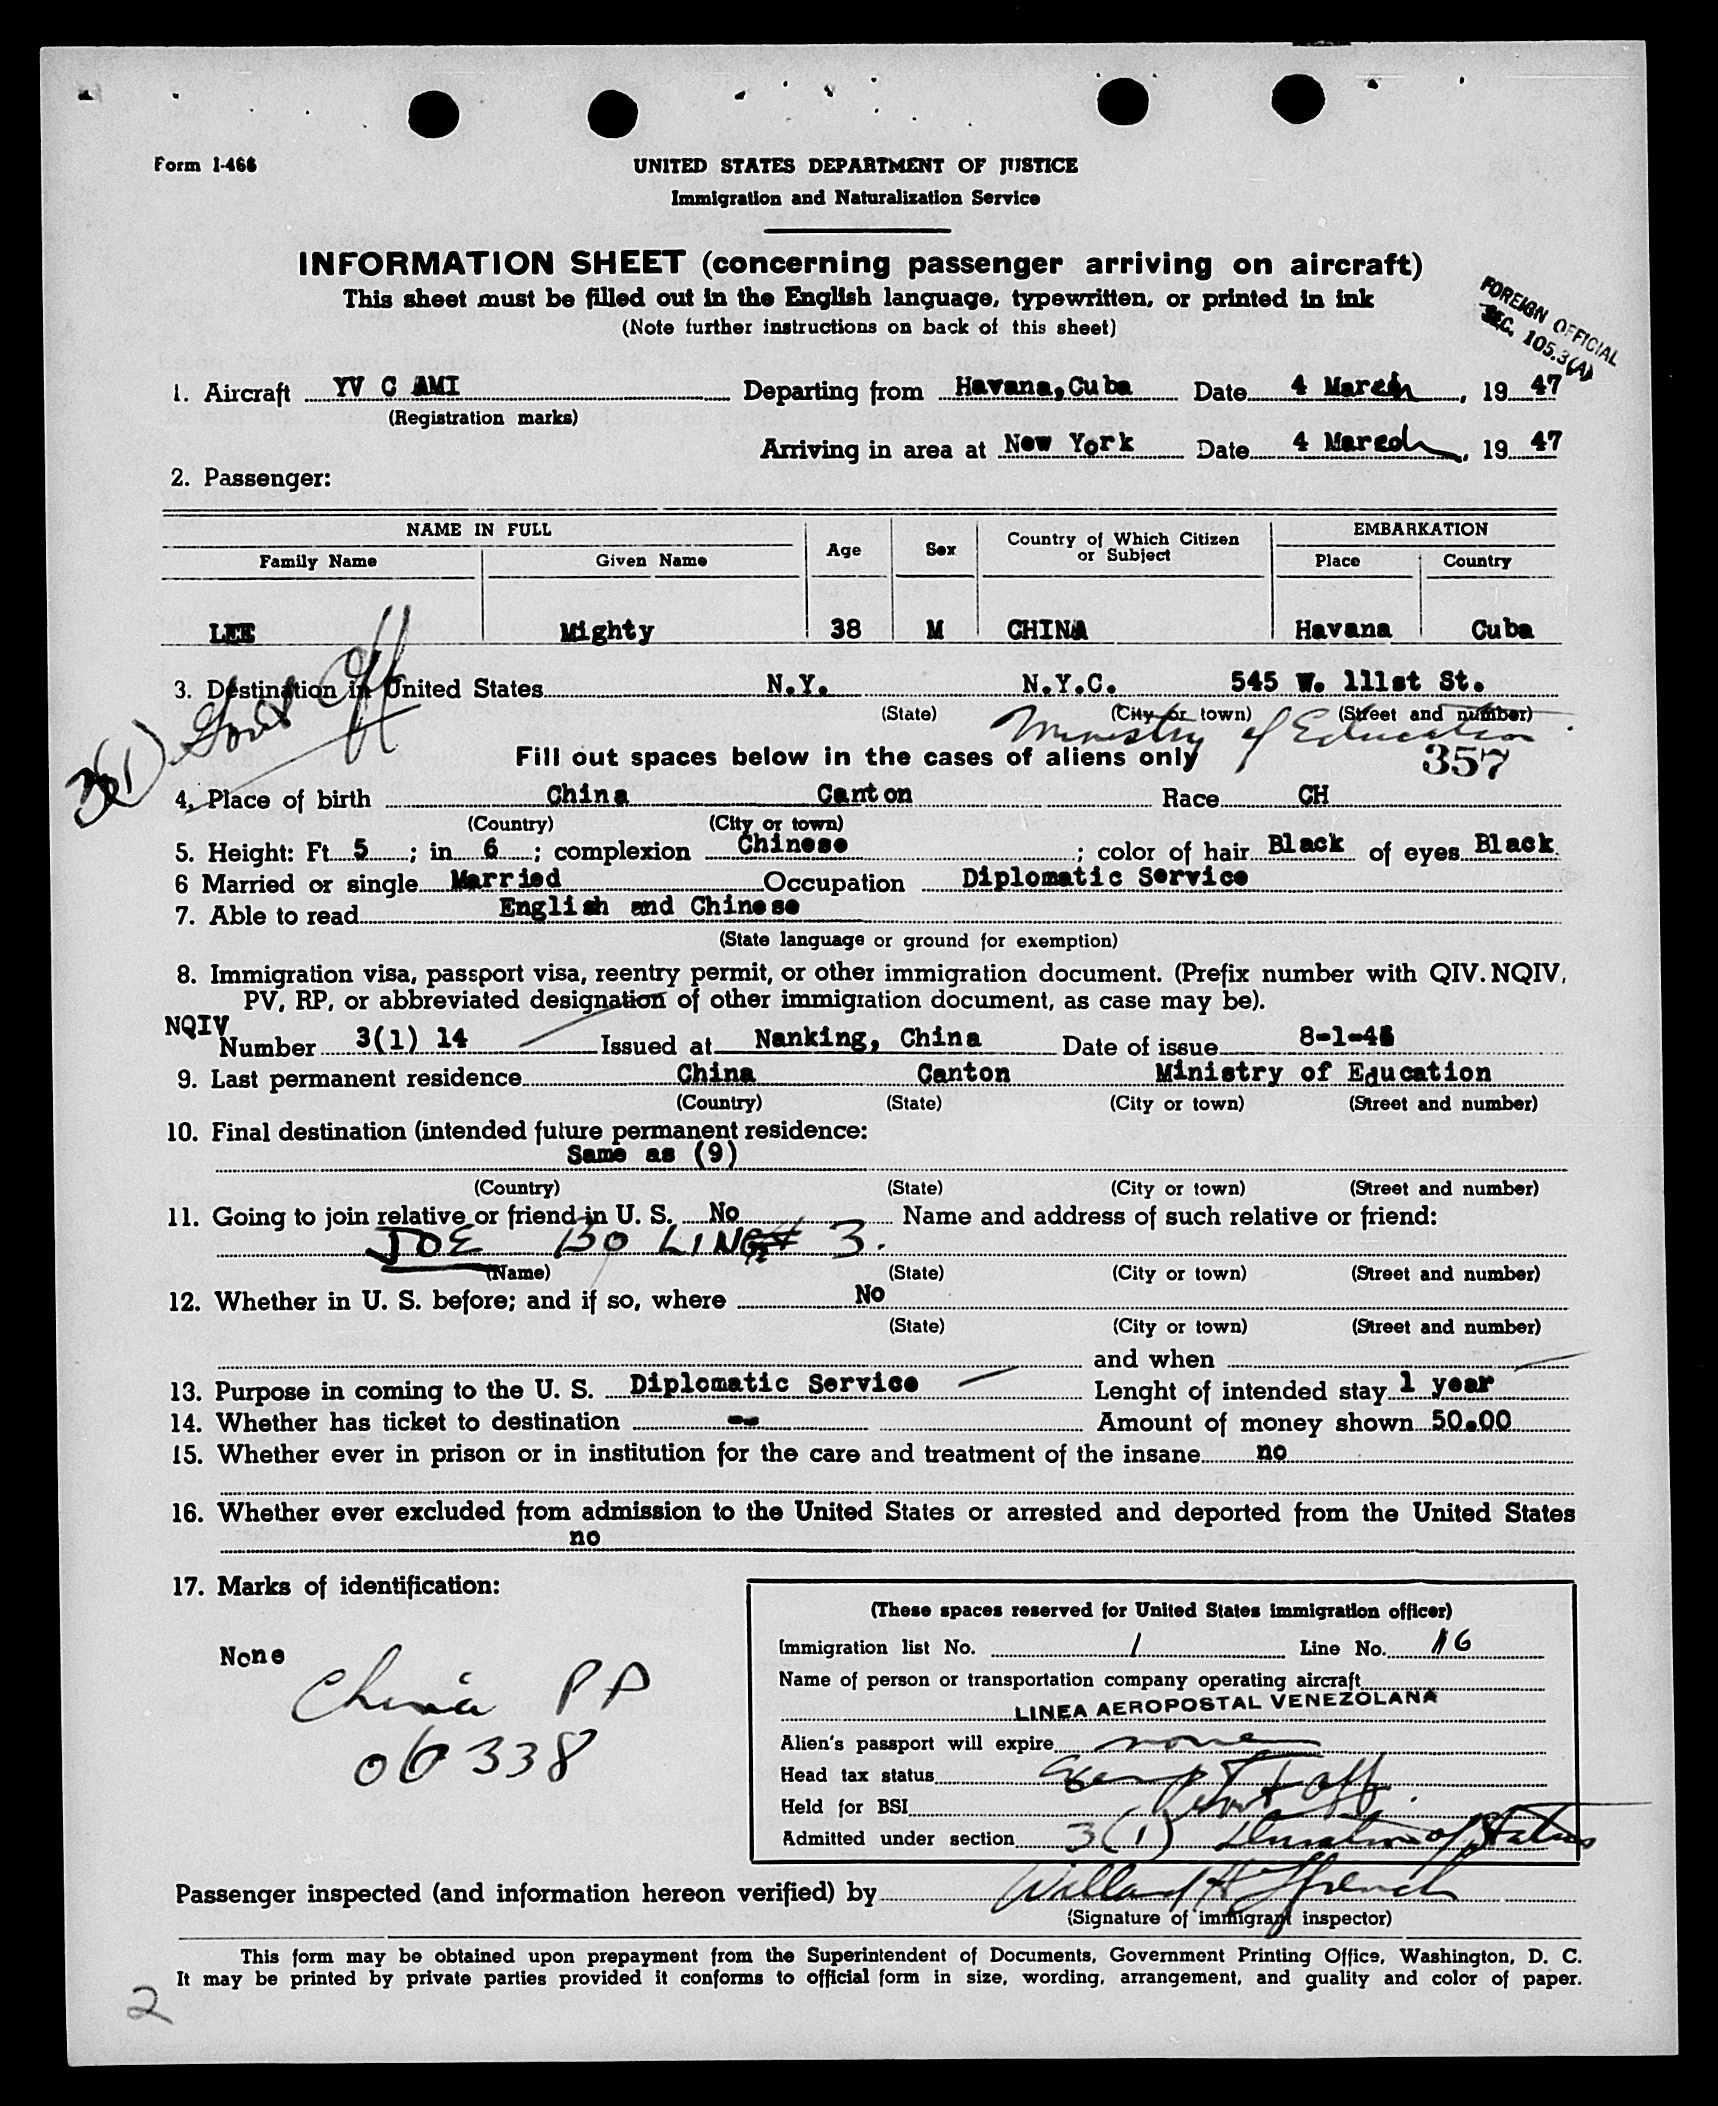 Form I-466
UNITED STATES DEPARTMENT OF JUSTICE
Immigration and Naturalization Service
INFORMATION SHEET (concerning passenger arriving on aircraft)
This sheet must be filled out in the English language, typewritten, or printed in ink
(Note further instructions on back of this sheet)
FOREIGN OFFICIAL
SEC. 105.3(A)
1. Aircraft YV C AMI Departing from Havana, Cuba Date 4 March, 19 47
(Registration marks)
Arriving in area at New York Date 4 March, 19 47
2. Passenger:
NAME IN FULL Age Sex Country of Which Citizen or Subject EMBARKATION
Family Name Given Name Place Country
LEE Mighty 38 M CHINA Havana Cuba
3(1) Govt Off
3. Destination in United States N.Y. N.Y.C. 545 W. 111st St.
(State) (City or town) (Street and number)
Ministry of Education
Fill out spaces below in the cases of aliens only 357
4. Place of birth China Canton Race CH
(Country) (City or town)
5. Height: Ft. 5; in. 6; complexion Chinese; color of hair Black of eyes Black
6 Married or single Married Occupation Diplomatic Service
7. Able to read English and Chinese
(State language or ground for exemption)
8. Immigration visa, passport visa, reentry permit, or other immigration document. (Prefix number with QIV. NQIV,
PV, RP, or abbreviated designation of other immigration document, as case may be).
NQIV
Number 3(1) 14 Issued at Nanking, China Date of issue 8-1-46
9. Last permanent residence China Canton Ministry of Education
(Country) (State) (City or town) (Street and number)
10. Final destination (intended future permanent residence:
Same as (9)
(Country) (State) (City or town) (Street and number)
11. Going to join relative or friend in U. S. No Name and address of such relative or friend:
JOE BO LING 3.
(Name) (State) (City or town) (Street and number)
12. Whether in U. S. before; and if so, where No
(State) (City or town) (Street and number)
and when
13. Purpose in coming to the U. S. Diplomatic Service Lenght of intended stay 1 year
14. Whether has ticket to destination -- Amount of money shown 50.00
15. Whether ever in prison or in institution for the care and treatment of the insane no
16. Whether ever excluded from admission to the United States or arrested and deported from the United States
no
17. Marks of identification:
None
China PP
06338
(These spaces reserved for United States immigration officer)
Immigration list No. 1 Line No. 16
Name of person or transportation company operating aircraft
LINEA AEROPOSTAL VENEZOLANA
Alien's passport will expire none
Head tax status Exempt Govt Off.
Held for BSI
Admitted under section 3(1) Duration of Status
Passenger inspected (and information hereon verified) by Willard H Ffrench
(Signature of immigrant inspector)
This form may be obtained upon prepayment from the Superintendent of Documents, Government Printing Office, Washington, D. C.
It may be printed by private parties provided it conforms to official form in size, wording, arrangement, and quality and color of paper.
2